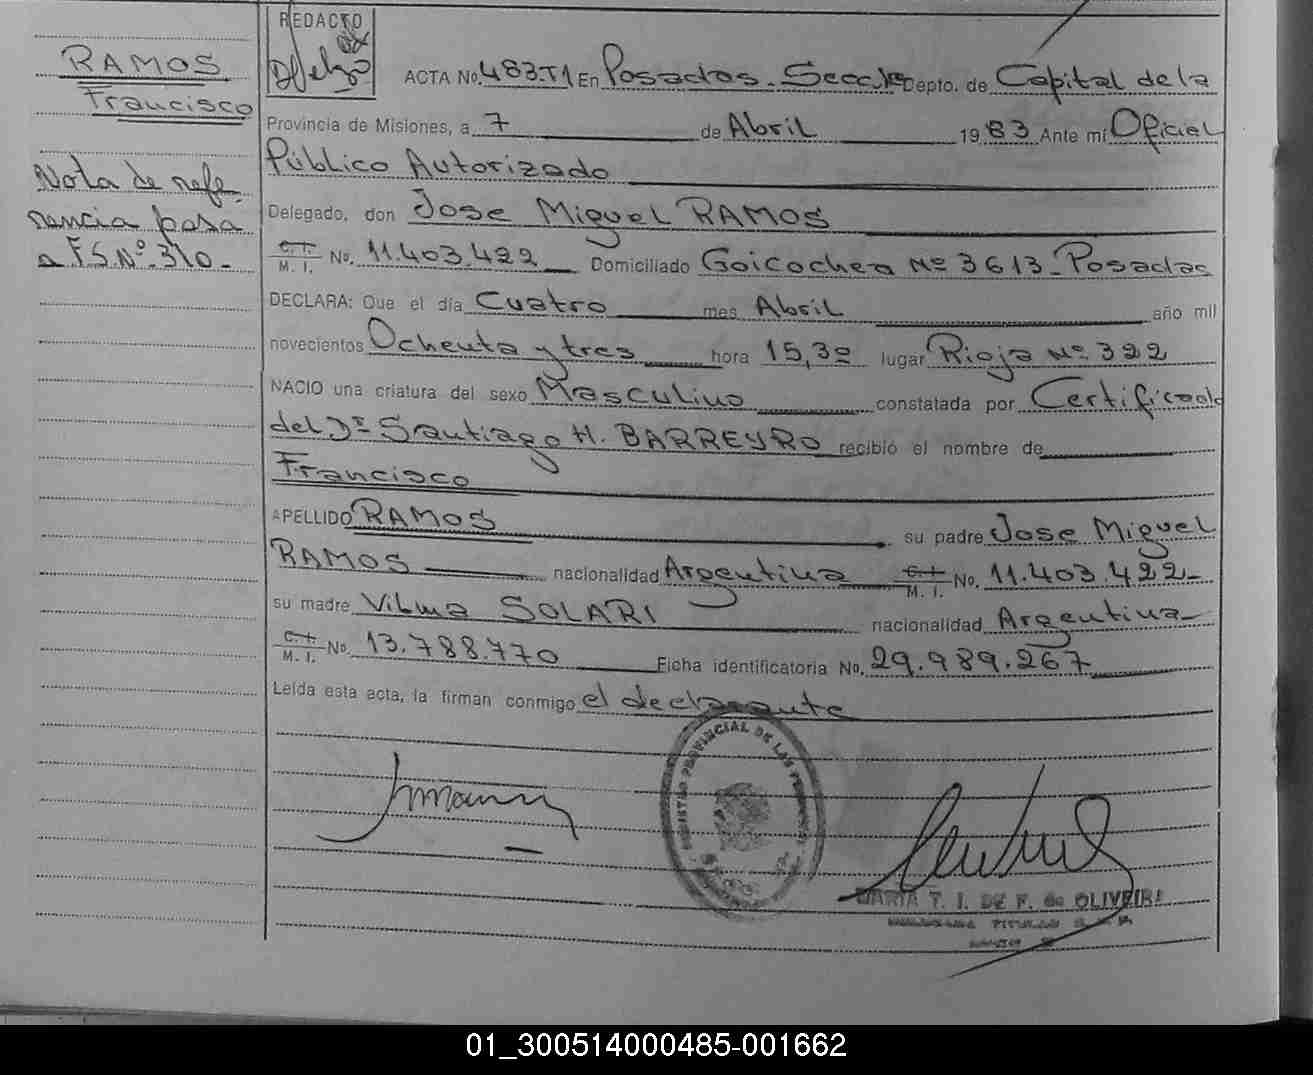 RAMOS
Francisco
Nota de refe-
rencia pasa
a FS.Nº.310-
REDACTO
ACTA No. 483.T1 En Posadas. Secc.1ª Depto. de Capital de la
Provincia de Misiones, a 7 de Abril 1983 Ante mí Oficial
Público Autorizado
Delegado, don Jose Miguel RAMOS
C.I. M. I. No. 11.403.422 Domiciliado Goicochea Nº 3613- Posadas
DECLARA: Que el día Cuatro mes Abril año mil
novecientos Ochenta y tres hora 15,30 lugar Rioja Nº 322
NACIO una criatura del sexo Masculino constatada por Certificado
del Dr Santiago H. BARREYRO recibió el nombre de
Francisco
APELLIDO RAMOS su padre Jose Miguel
RAMOS nacionalidad Argentina C.I. M. I. No. 11.403.422-
su madre Vilma SOLARI nacionalidad Argentina
C.I. M. I. No. 13.788.770 Ficha identificatoria No. 29.989.267
Leída esta acta, la firman conmigo el declarante
REGISTRO PROVINCIAL DE LAS PERSONAS
MARIA T. I. DE F. de OLIVEIRA
01_300514000485-001662